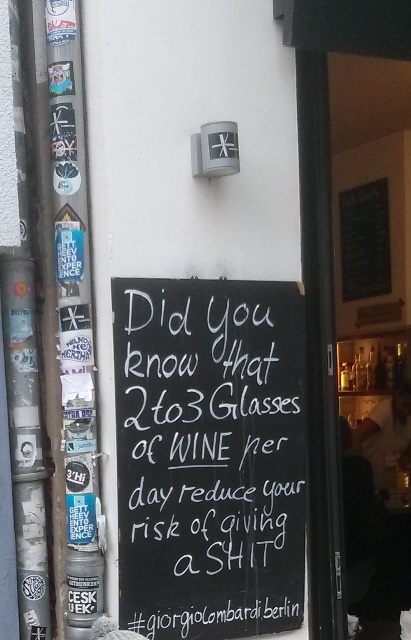 Did you
know that
2 to 3 Glasses
of WINE per
day reduce your
risk of giving
a SHIT
#giorgiolombardi.berlin
GETT
HEEV
ENTO
EXPER
IENCE
GETT
HEEV
ENTO
EXPER
IENCE
3'Hi